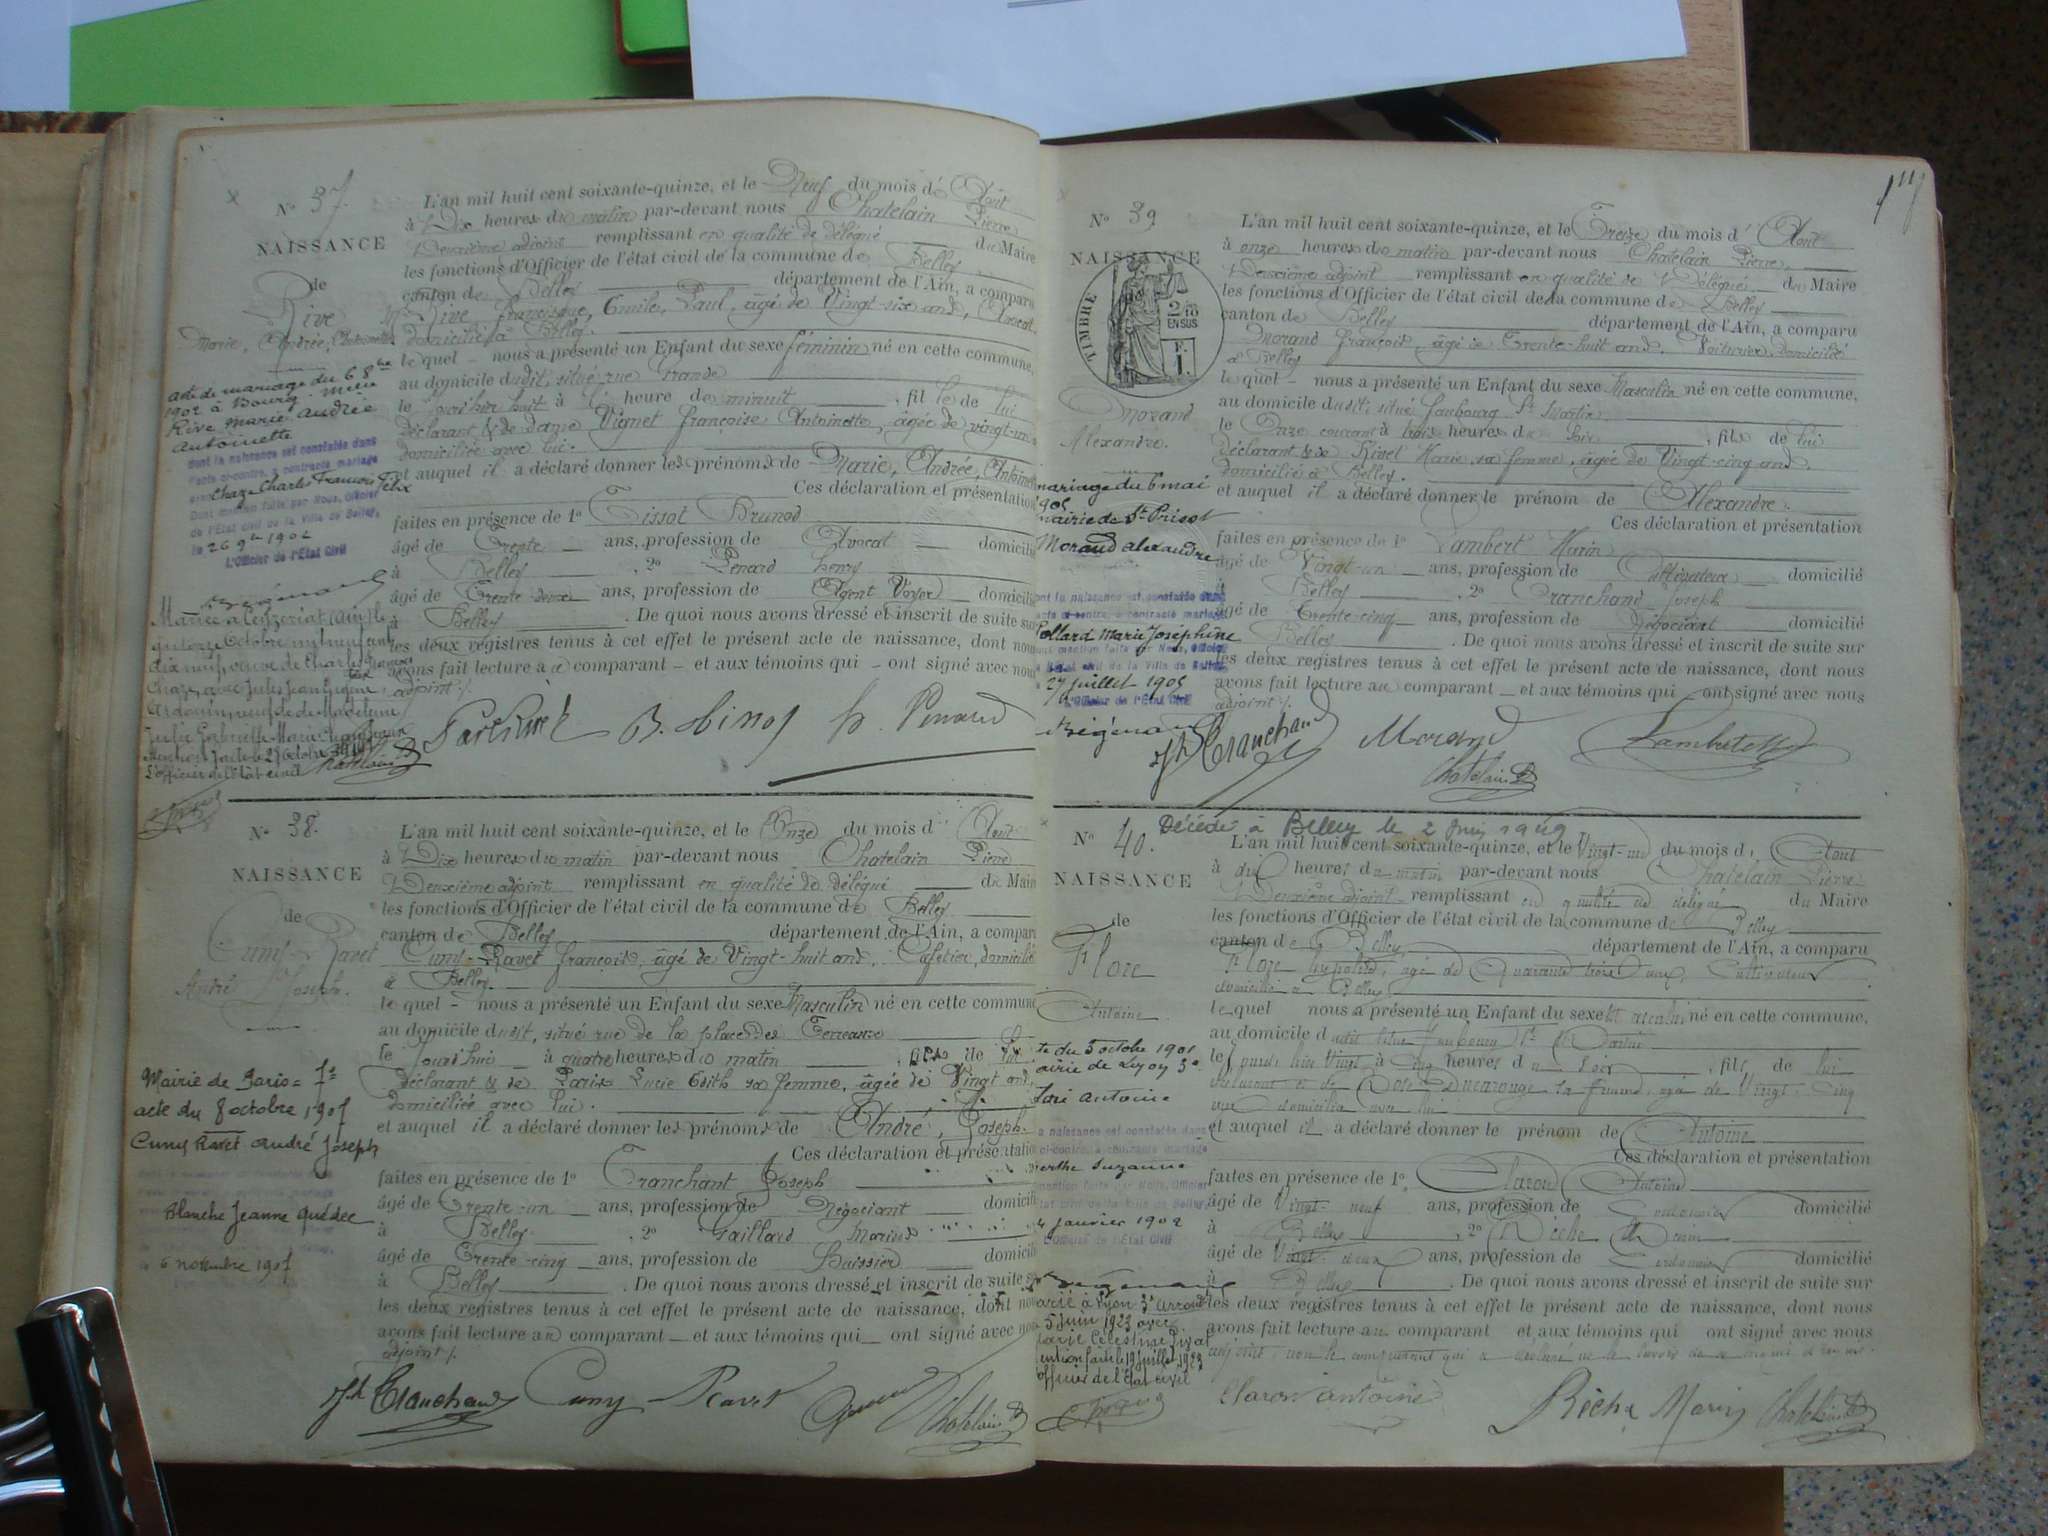 N° 37.
NAISSANCE
de
Rive
Marie, Andrée, Antoinette
L'an mil huit cent soixante-quinze, et le Neuf du mois d'Août
à Dix heures du matin par-devant nous Chatelain Pierre
Deuxième adjoint remplissant en qualité de délégué du Maire
les fonctions d'Officier de l'état civil de la commune de Belley
canton de Belley département de l'Ain, a comparu
Rive Francisque, Emile, Paul, âgé de Vingt-six ans, Avocat
domicilié à Belley.
le quel nous a présenté un Enfant du sexe féminin né en cette commune,
au domicile dudit, situé rue Grande
le jourd'hier huit à heure de minuit, fille de lui
déclarant & de dame Vignet Françoise Antoinette, âgée de vingt-un
domiciliée avec lui.
et auquel il a déclaré donner les prénoms de Marie, Andrée, Antoinette
Ces déclaration et présentation
faites en présence de 1° Tissot Bruno
âgé de Trente ans, profession de Avocat domicilié
à Belley, 2° Penard henry
âgé de Trente-deux ans, profession de Agent Voyer domicilié
à Belley. De quoi nous avons dressé et inscrit de suite sur
les deux registres tenus à cet effet le présent acte de naissance, dont nous
avons fait lecture au comparant et aux témoins qui ont signé avec nous
adjoint %.
acte de mariage du 6 8bre
1902 à Bourg
Rive Marie Andrée
Antoinette
dont la naissance est constatée dans
l'acte ci-contre, a contracté mariage
avec Chaze Charles François Félix
Dont mention faite par Nous, Officier
de l'Etat civil de la Ville de Belley,
le 26 9bre 1902
L'Officier de l'Etat Civil
Mariée à Ceyzeriat (Ain) le
quinze Octobre mil neuf cent
dix neuf, veuve de Charles François
Chaze, avec Jules Jean Eugène
Ardouin, veuf de Madeleine
Julie Gabrielle Marie
Mention faite le 27 Octobre
L'officier de l'état civil
Chatelain
B. Tissot h. Penard
N° 38.
NAISSANCE
de
Cuny-Ravet
André Joseph.
L'an mil huit cent soixante-quinze, et le Onze du mois d'Août
à Dix heures du matin par-devant nous Chatelain Pierre
Deuxième adjoint remplissant en qualité de délégué du Maire
les fonctions d'Officier de l'état civil de la commune de Belley
canton de Belley département de l'Ain, a comparu
Cuny-Ravet François, âgé de Vingt-huit ans, Cafetier, domicilié
à Belley.
le quel nous a présenté un Enfant du sexe Masculin né en cette commune
au domicile dudit, situé rue de la place des Terreaux
le jourd'hui à quatre heures du matin, fils de lui
déclarant & de Paris Lucie Edith sa femme, âgée de Vingt ans,
domiciliée avec lui.
et auquel il a déclaré donner les prénoms de André, Joseph.
Ces déclaration et présentation
faites en présence de 1° Tranchant Joseph
âgé de Trente-un ans, profession de Négociant domicilié
à Belley, 2° Gaillard Marius
âgé de Trente-cinq ans, profession de huissier domicilié
à Belley. De quoi nous avons dressé et inscrit de suite sur
les deux registres tenus à cet effet le présent acte de naissance, dont nous
avons fait lecture au comparant et aux témoins qui ont signé avec nous
adjoint %.
Mairie de Paris
acte du 8 octobre 1907
Cuny Ravet André Joseph
Blanche Jeanne Quédec
6 novembre 1907
Jph Tranchand Cuny-Ravet Chatelain
N° 39
NAISSANCE
TIMBRE
2/10 EN SUS
F. 1.
Morand
Alexandre.
L'an mil huit cent soixante-quinze, et le Treize du mois d'Août
à onze heures du matin par-devant nous Chatelain Pierre,
Deuxième adjoint remplissant en qualité de Délégué du Maire
les fonctions d'Officier de l'état civil de la commune de Belley
canton de Belley département de l'Ain, a comparu
Morand François, âgé de Trente-huit ans, Voiturier, domicilié
à Belley
le quel nous a présenté un Enfant du sexe Masculin né en cette commune,
au domicile dudit, situé faubourg St Martin
le Onze courant à trois heures du soir, fils de lui
déclarant & de Rivel Marie, sa femme, âgée de Vingt-cinq ans
domiciliée à Belley.
et auquel il a déclaré donner le prénom de Alexandre.
Ces déclaration et présentation
faites en présence de 1° Lambert Marin
âgé de Vingt-un ans, profession de Cultivateur domicilié
à Belley, 2° Tranchand Joseph
âgé de Trente-cinq ans, profession de Négociant domicilié
à Belley. De quoi nous avons dressé et inscrit de suite sur
les deux registres tenus à cet effet le présent acte de naissance, dont nous
avons fait lecture au comparant et aux témoins qui ont signé avec nous
adjoint %.
mariage du 6 mai
1905
mairie de St Priest
Morand Alexandre
dont la naissance est constatée dans
l'acte ci-contre, a contracté mariage
Pollard Marie Joséphine
Dont mention faite par Nous, Officier
de l'Etat civil de la Ville de Belley
27 juillet 1905
L'Officier de l'Etat Civil
Jph Tranchand Morand Lambert
Chatelain
N° 40.
Décédé à Belley le 2 Juin 1949
NAISSANCE
de
Flore
Antoine
L'an mil huit cent soixante-quinze, et le Vingt-un du mois d'Août
à dix heures du matin par-devant nous Chatelain Pierre
Deuxième adjoint remplissant en qualité de délégué du Maire
les fonctions d'Officier de l'état civil de la commune de Belley
canton de Belley département de l'Ain, a comparu
Flore hypolite, âgé de Quarante trois ans, Cultivateur
domicilié à Belley
le quel nous a présenté un Enfant du sexe Masculin né en cette commune,
au domicile dudit situé faubourg St Martin
le jourd'hier Vingt à cinq heures du soir, fils de lui
déclarant et de Rose Ducarouge sa femme, âgée de Vingt-cinq
ans domiciliée avec lui
et auquel il a déclaré donner le prénom de Antoine
Ces déclaration et présentation
faites en présence de 1° Claron Antoine
âgé de Vingt-neuf ans, profession de Cordonnier domicilié
à Belley, 2° Riche Marin
âgé de Vingt-deux ans, profession de Cordonnier domicilié
à Belley. De quoi nous avons dressé et inscrit de suite sur
les deux registres tenus à cet effet le présent acte de naissance, dont nous
avons fait lecture au comparant et aux témoins qui ont signé avec nous
adjoint, non le comparant qui a déclaré ne le savoir de ce requis
du 5 octobre 1901
mairie de Lyon 3e
Flore Antoine
la naissance est constatée dans
ci-contre, a contracté mariage
Berthe Suzanne
mention faite par Nous, Officier
4 janvier 1902
L'Officier de l'Etat Civil
Marié à Lyon 3e arrond
5 Juin 1923 avec
Marie Célestine
mention faite le 19 juillet 1923
officier de l'état civil
Claron antoine Riche Marin Chatelain